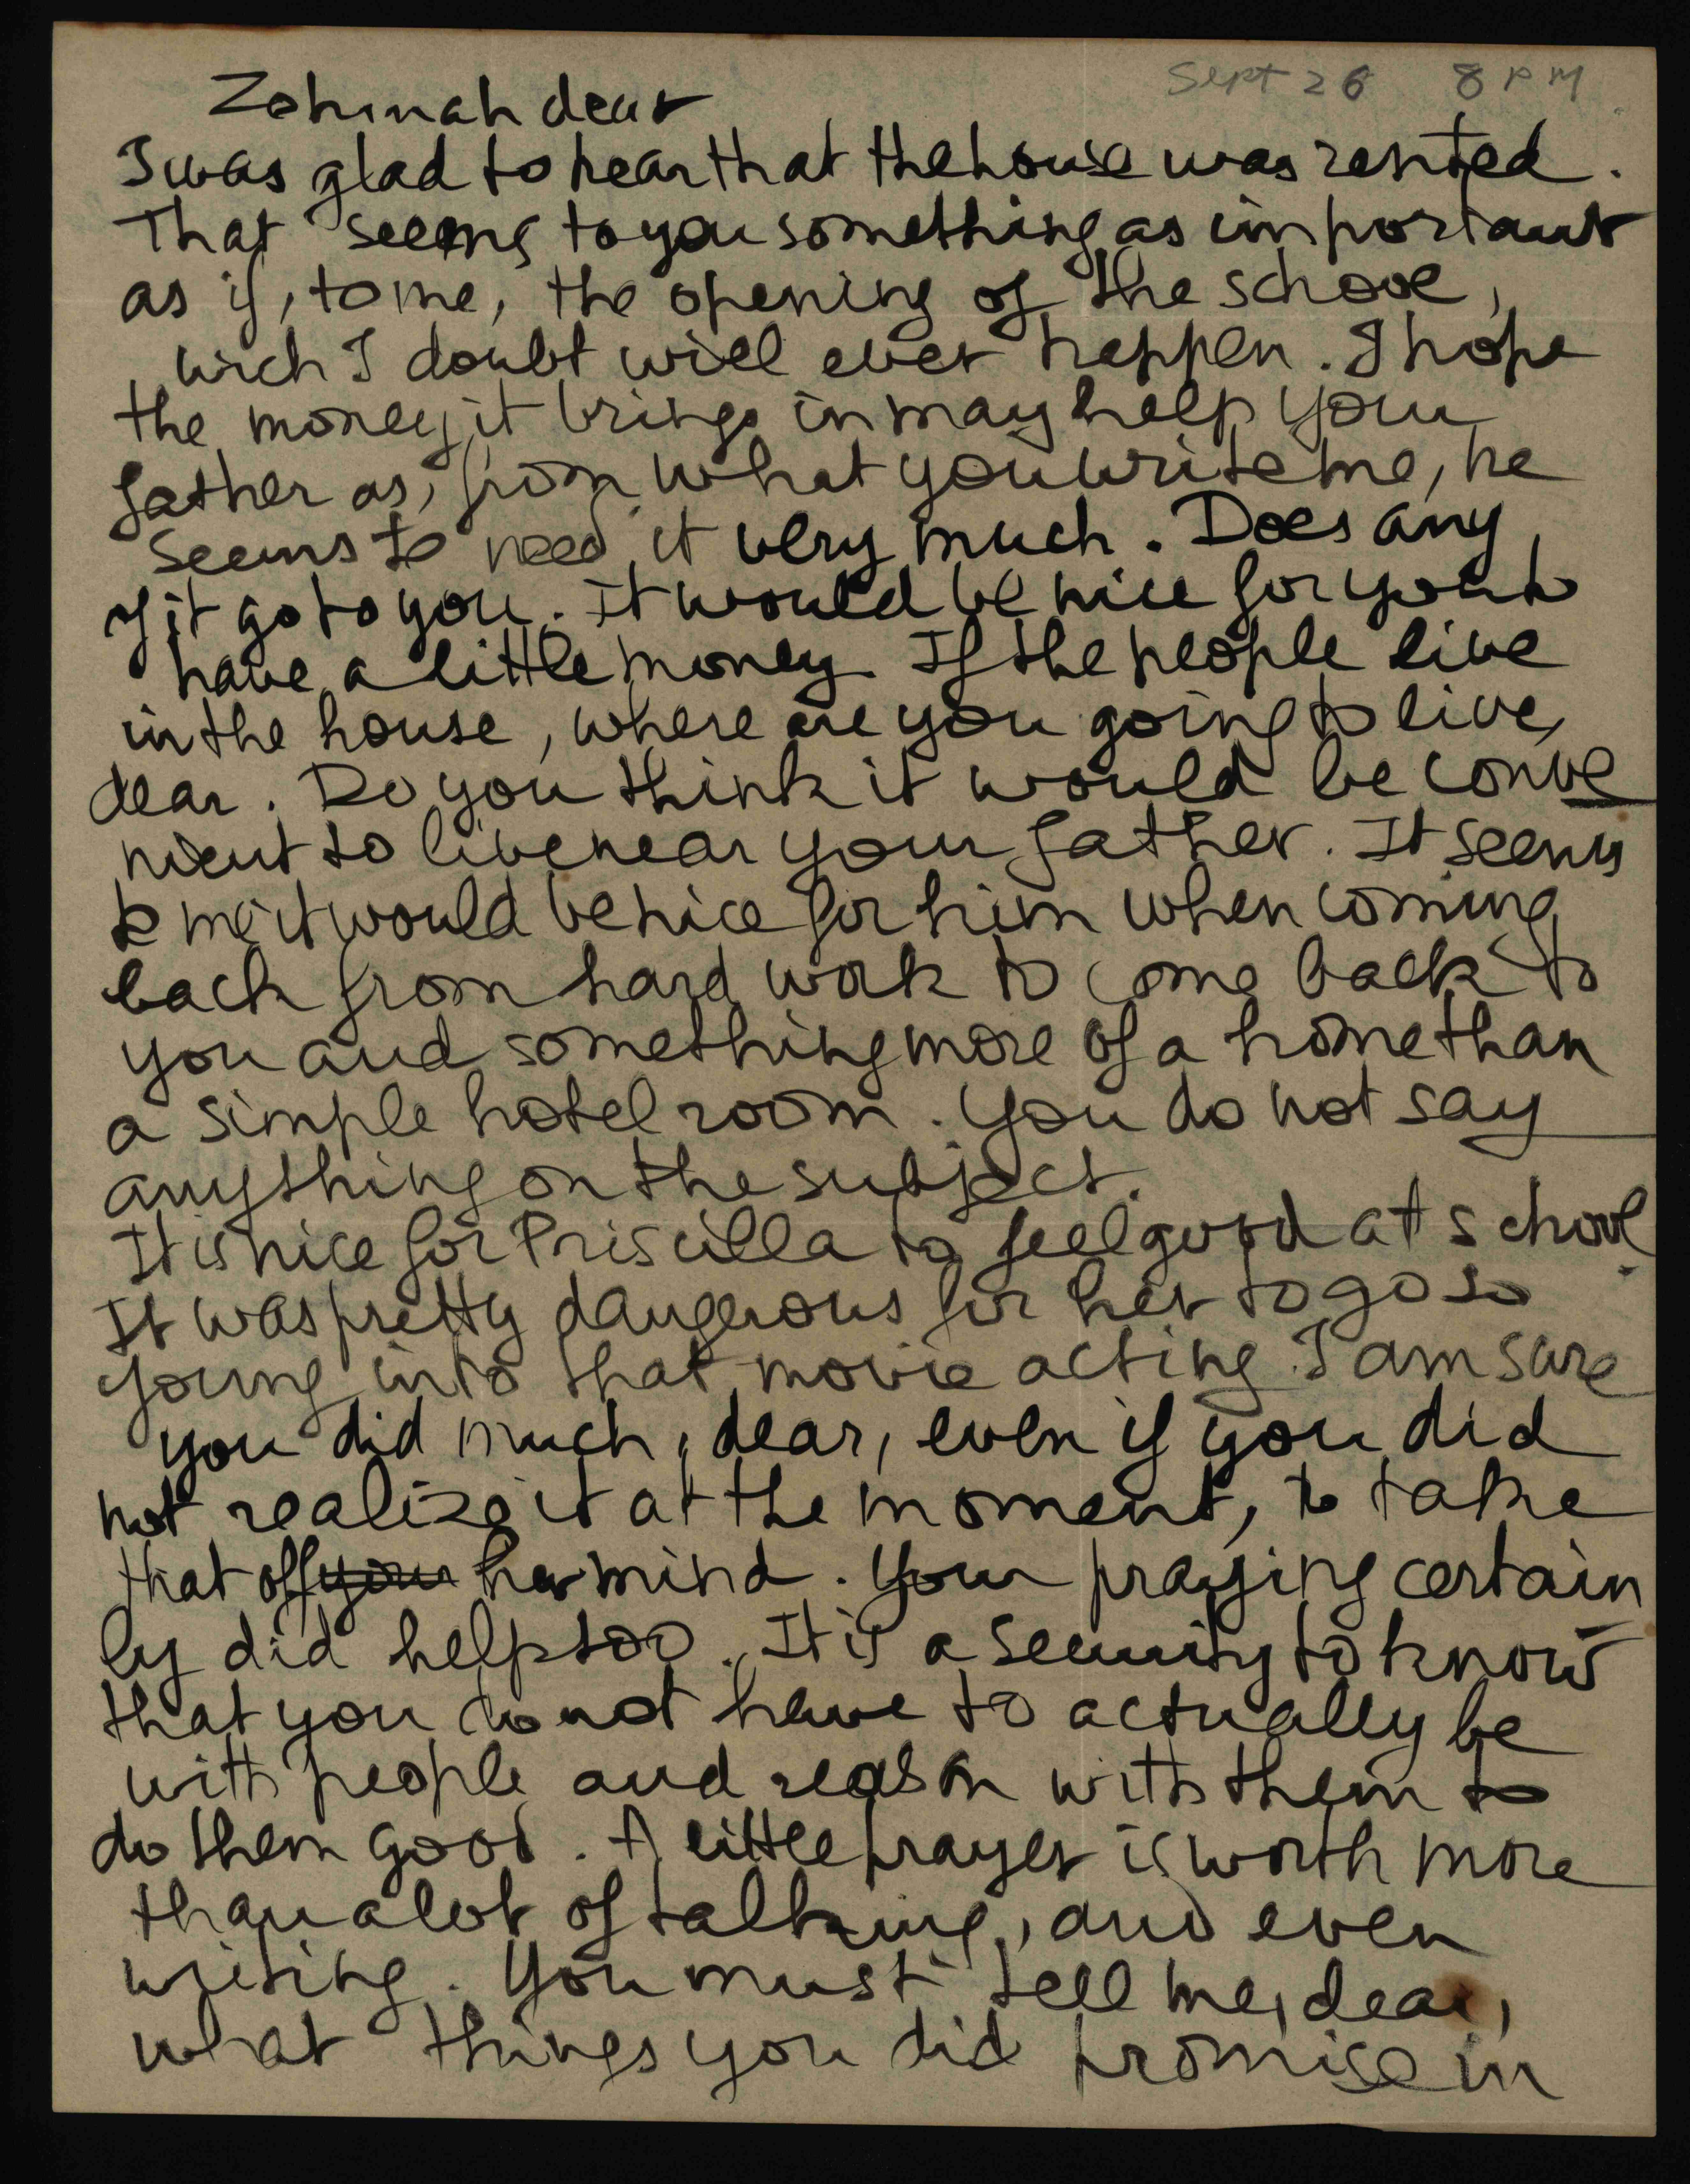 Sept 26 8 PM
Zohmah dear
I was glad to hear that the house was rented.
That seems to you something as important
as if, to me, the opening of the school,
wich I doubt will ever heppen. I hope
the money it brings in may help your
father as, from what you write me, he
seems to need it very much. Does any
of it go to you. It would be nice for you to
have a little money. If the people live
in the house, where are you going to live,
dear. Do you think it would be conve
nient to live near your father. It seems
to me it would be nice for him when coming
back from hard work to come back to
you and something more of a home than
a simple hotel room. You do not say
anything on the subject.
It is nice for Priscilla to feel good at school.
It was pretty dangerous for her to go so
young into that movie acting. I am sure
you did much, dear, even if you did
not realize it at the moment, to take
that off your her mind. Your praying certain
ly did help too. It is a security to know
that you do not have to actually be
with people and reason with them to
do them good. A little prayer is worth more
than a lot of talking, and even
writing. You must tell me, dear,
what things you did promise in